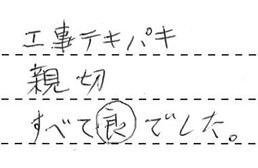 工事テキパキ
親切
すべて良でした。